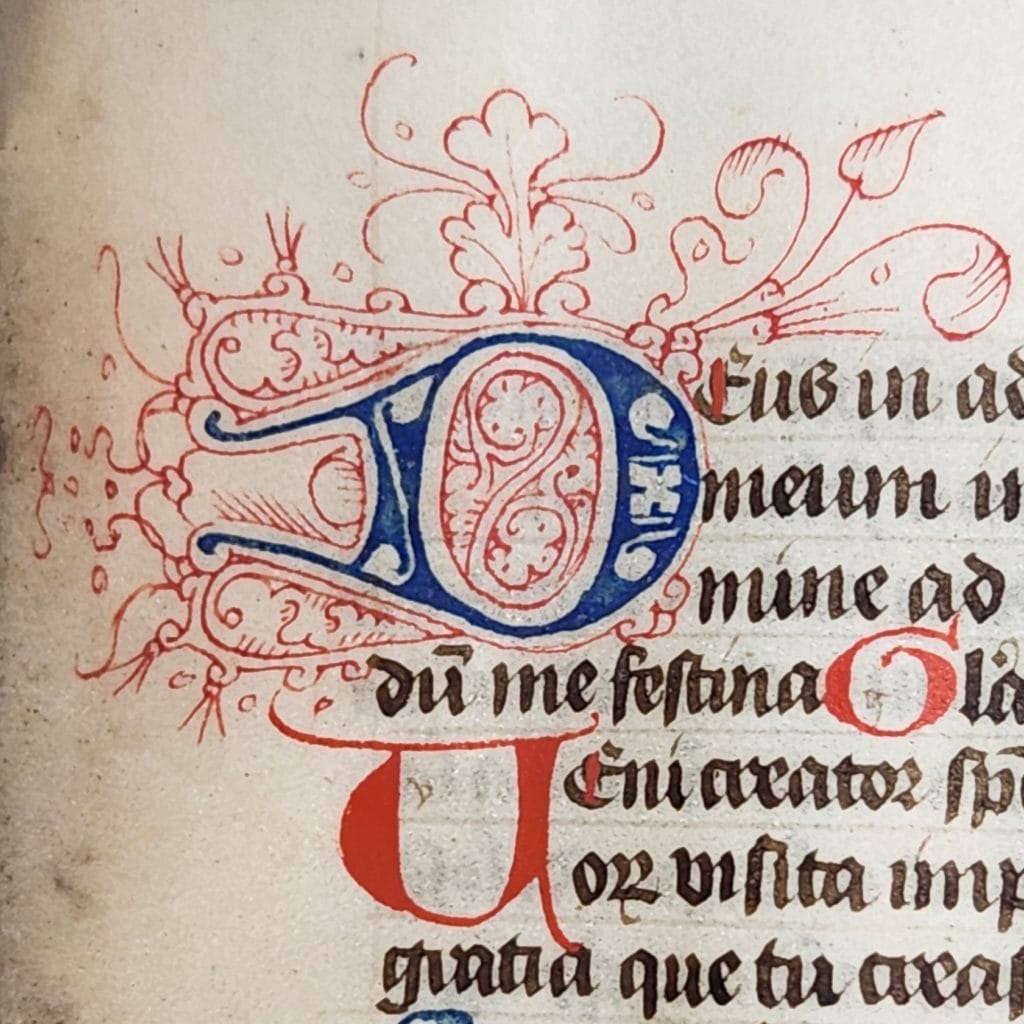 DEus in ad
meum in
mine ad
dū me festina Gla
UEni creator sp̄
or visita imp
gratia que tu creas